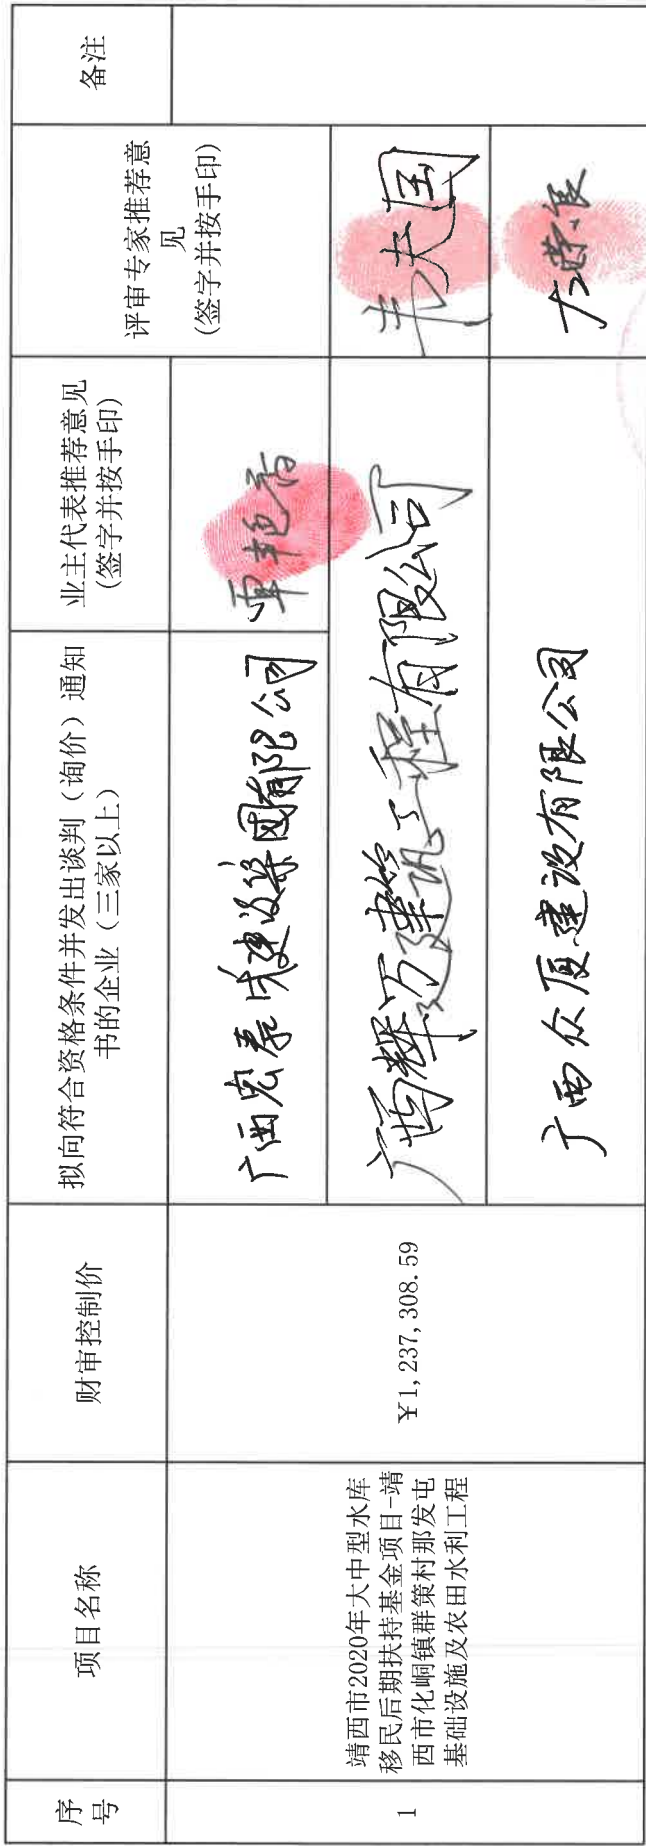 序
号
项目名称
财审控制价
拟向符合资格条件并发出谈判（询价）通知
书的企业（三家以上）
业主代表推荐意见
(签字并按手印)
评审专家推荐意
见
(签字并按手印)
备注
1
靖西市2020年大中型水库
移民后期扶持基金项目-靖
西市化峒镇群策村那发屯
基础设施及农田水利工程
¥1,237,308.59
广西宏泰成建设集团有限公司
广西辉万建筑工程有限公司
广西众厦建设有限公司